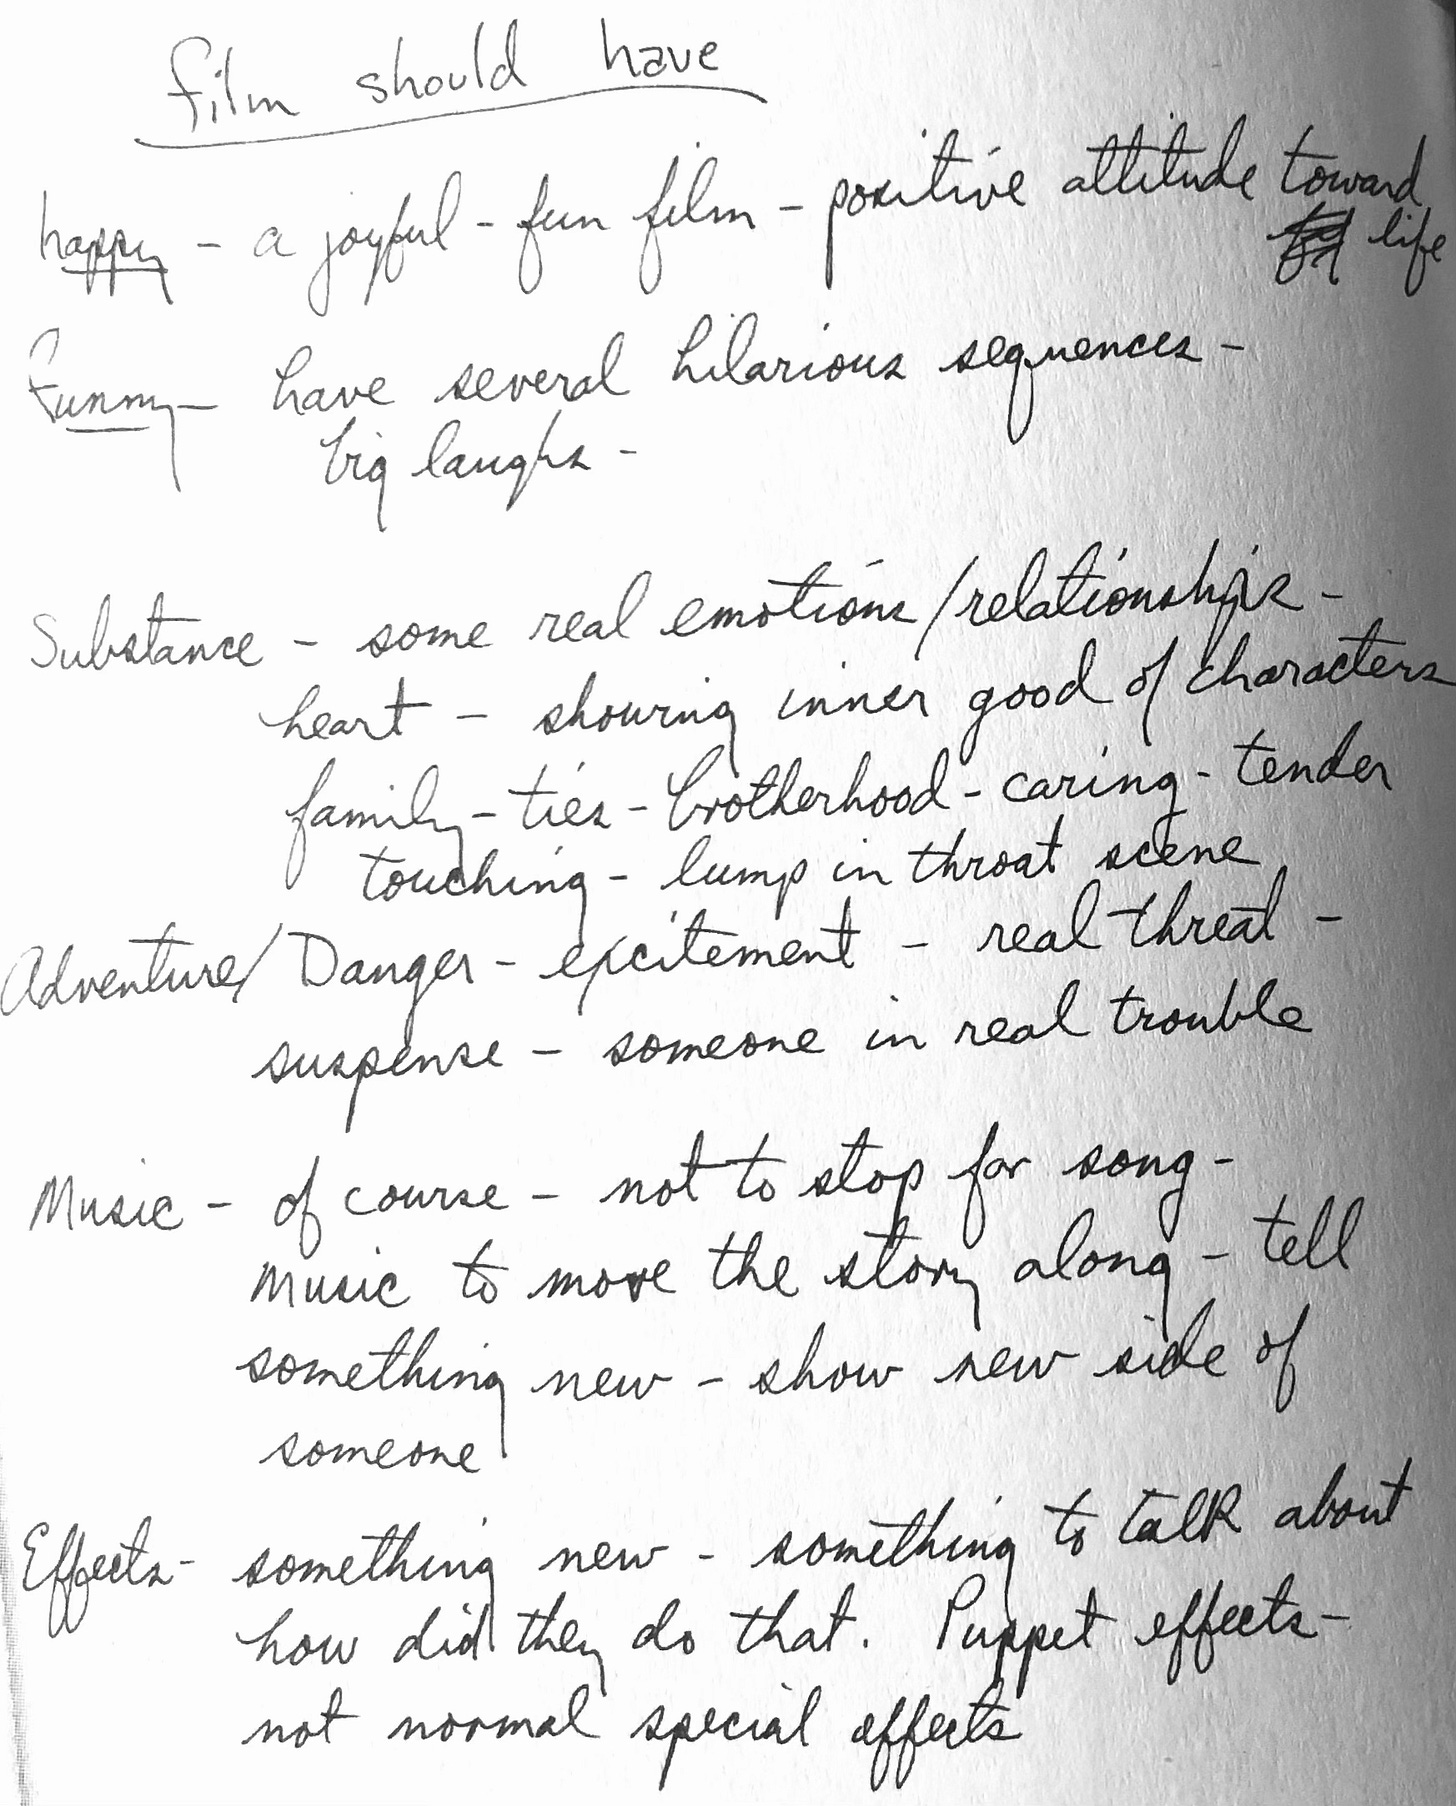 film should have
happy - a joyful - fun film - positive attitude toward
life
Funny - have several hilarious sequences -
big laughs -
Substance - some real emotions/relationships -
heart - showing inner good of characters
family - ties - brotherhood - caring - tender
touching - lump in throat scene
Adventure/Danger - excitement - real threat -
suspense - someone in real trouble
Music - of course - not to stop for song -
Music to move the story along - tell
something new - show new side of
someone
Effects - something new - something to talk about
how did they do that. Puppet effects -
not normal special effects